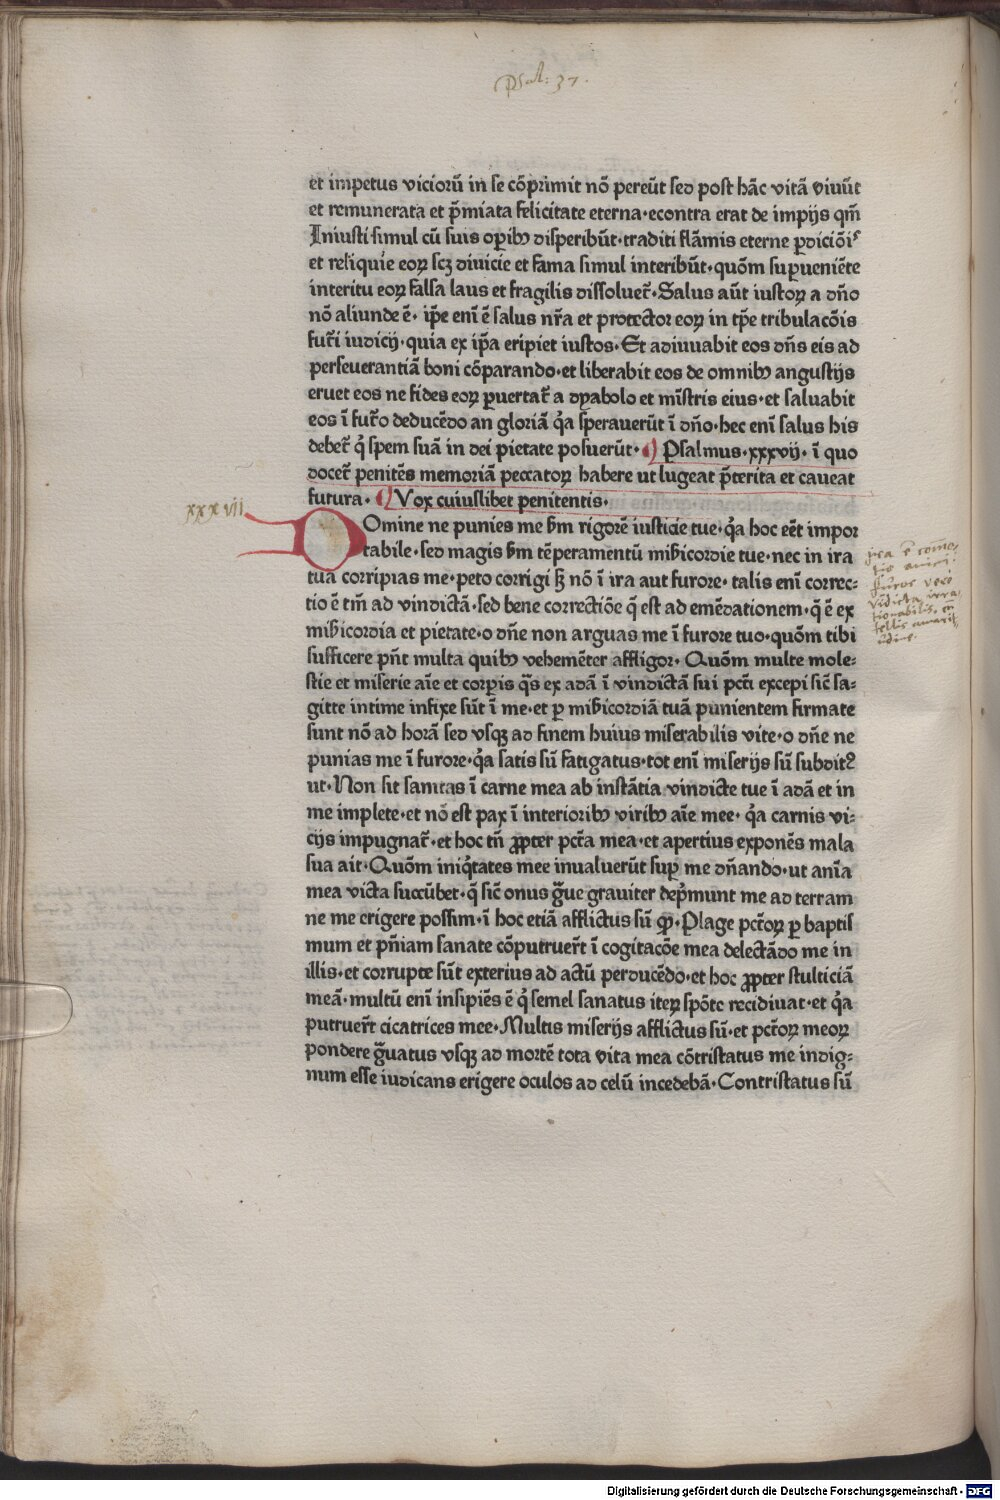 Psal: 37.
et impetus vicioꝝ̄ in se cōprimit nō pereūt sed post hāc vitā viuūt
et remunerata et p̄miata felicitate eterna·econtra erat de impijs qm̄
Iniusti simul cū suis oꝑibꝫ disperibūt·traditi flāmis eterne ꝑdiciōis
et reliquie eoꝝ scꝫ diuicie et fama simul interibūt·quōm suꝑueniēte
interitu eoꝝ falsa laus et fragilis dissoluet᷑·Salus aūt iustoꝝ a dn̄o
nō aliunde ē· ip̄e enī ē salus nr̄a et protector eoꝝ in tp̄e tribulacōis
fut᷑i iudicij·quia ex ip̄a eripiet iustos·Et adiuuabit eos dn̄s eis ad
perseuerantiā boni cōparando·et liberabit eos de omnibꝫ angustijs
eruet eos ne fides eoꝝ ꝑuertat᷑ a dyabolo et mīstris eius·et saluabit
eos ī fut᷑o deducēdo an gloriā qͥa sperauerūt ī dn̄o·hec enī salus his
debet᷑ qͥ spem suā in dei pietate posuerūt· ¶ Psalmus·xxxvij· ī quo
docet᷑ penitēs memoriā peccatoꝝ habere ut lugeat p̄terita et caueat
futura· ¶ Vox cuiuslibet penitentis·
xxxvii
Domine ne punies me ẜm rigorē iusticie tue·qͥa hoc eēt impor
tabile·sed magis ẜm tēperamentū mīẜicordie tue·nec in ira
tua corripias me·peto corrigi ꜩ nō ī ira aut furore· talis enī correc⸗
tio ē tm̄ ad vindictā·sed bene correctiōe q̄ est ad emēdationem·q̄ ē ex
mīẜicordia et pietate·o dn̄e non arguas me ī furore tuo·quōm tibi
sufficere pn̄t multa quibꝫ vehemēter affligor· Quōm multe mole⸗
stie et miserie aīe et corꝑis q̄s ex adā ī vindictā sui pctī excepi sic̄ sa⸗
gitte intime infixe sūt ī me·et ꝑ mīẜicordiā tuā punientem firmate
sunt nō ad horā sed vsqꝫ ad finem huius miserabilis vite·o dn̄e ne
punias me ī furore·qͥa satis sū fatigatus·tot enī miserijs sū subditꝰ
ut·Non sit sanitas ī carne mea ab instātia vindicte tue ī adā et in
me implete·et nō est pax ī interioribꝫ viribꝫ aīe mee· qͥa carnis vi⸗
cijs impugnat᷑·et hoc tn̄ ꝓpter pctā mea·et apertius exponēs mala
sua ait·Quōm iniqͥtates mee inualuerūt suꝑ me dn̄ando·ut anīa
mea victa succūbet·q̄ sic̄ onus gͣue grauiter dep̄munt me ad terram
ne me erigere possim·ī hoc etiā afflictus sū qꝫ·Plage pctōꝝ ꝑ baptis
mum et pn̄iam sanate cōputruer̄t ī cogitacōe mea delectādo me in
illis·et corrupte sūt exterius ad actū perducēdo·et hoc ꝓpter stulticiā
meā·multū enī insipiēs ē qͥ semel sanatus iteꝝ spōte recidiuat·et qͥa
putruer̄t cicatrices mee·Multis miserijs afflictus sū·et pctōꝝ meoꝝ
pondere gͣuatus vsqꝫ ad mortē tota vita mea cōtristatus me indig⸗
num esse iudicans erigere oculos ad celū incedebā·Contristatus sū
ira ē com̄o⸗
tio animi
furor vero
vīdicta irra
tionabilis,
fellis amarit
udine.
Digitalisierung gefördert durch die Deutsche Forschungsgemeinschaft - DFG